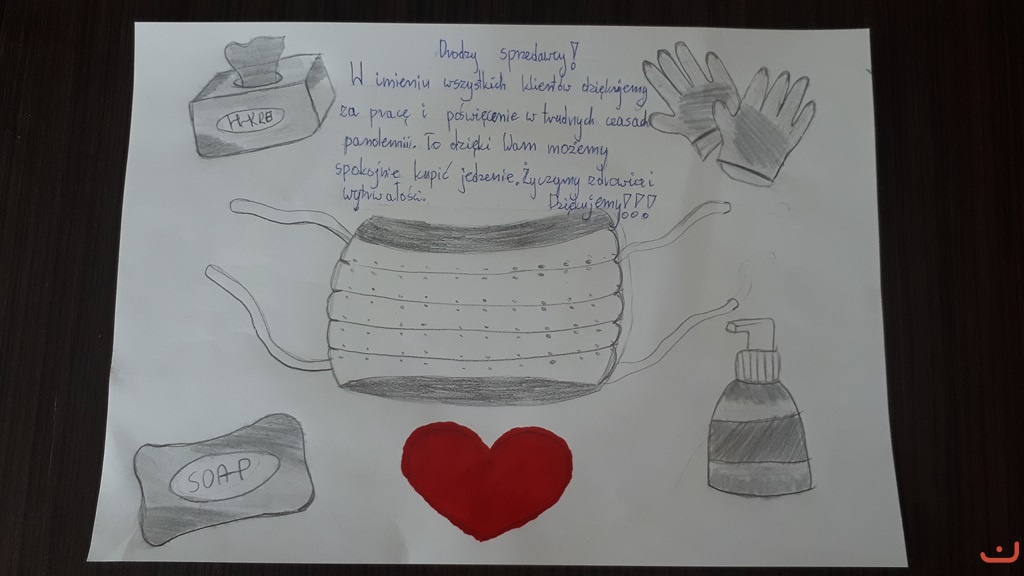 Drodzy sprzedawcy!
W imieniu wszystkich klientów dziękujemy
za pracę i poświęcenie w trudnych czasach
pandemii. To dzięki Wam możemy
spokojnie kupić jedzenie. Życzymy zdrowia i
wytrwałości.
Dziękujemy!!!
SOAP